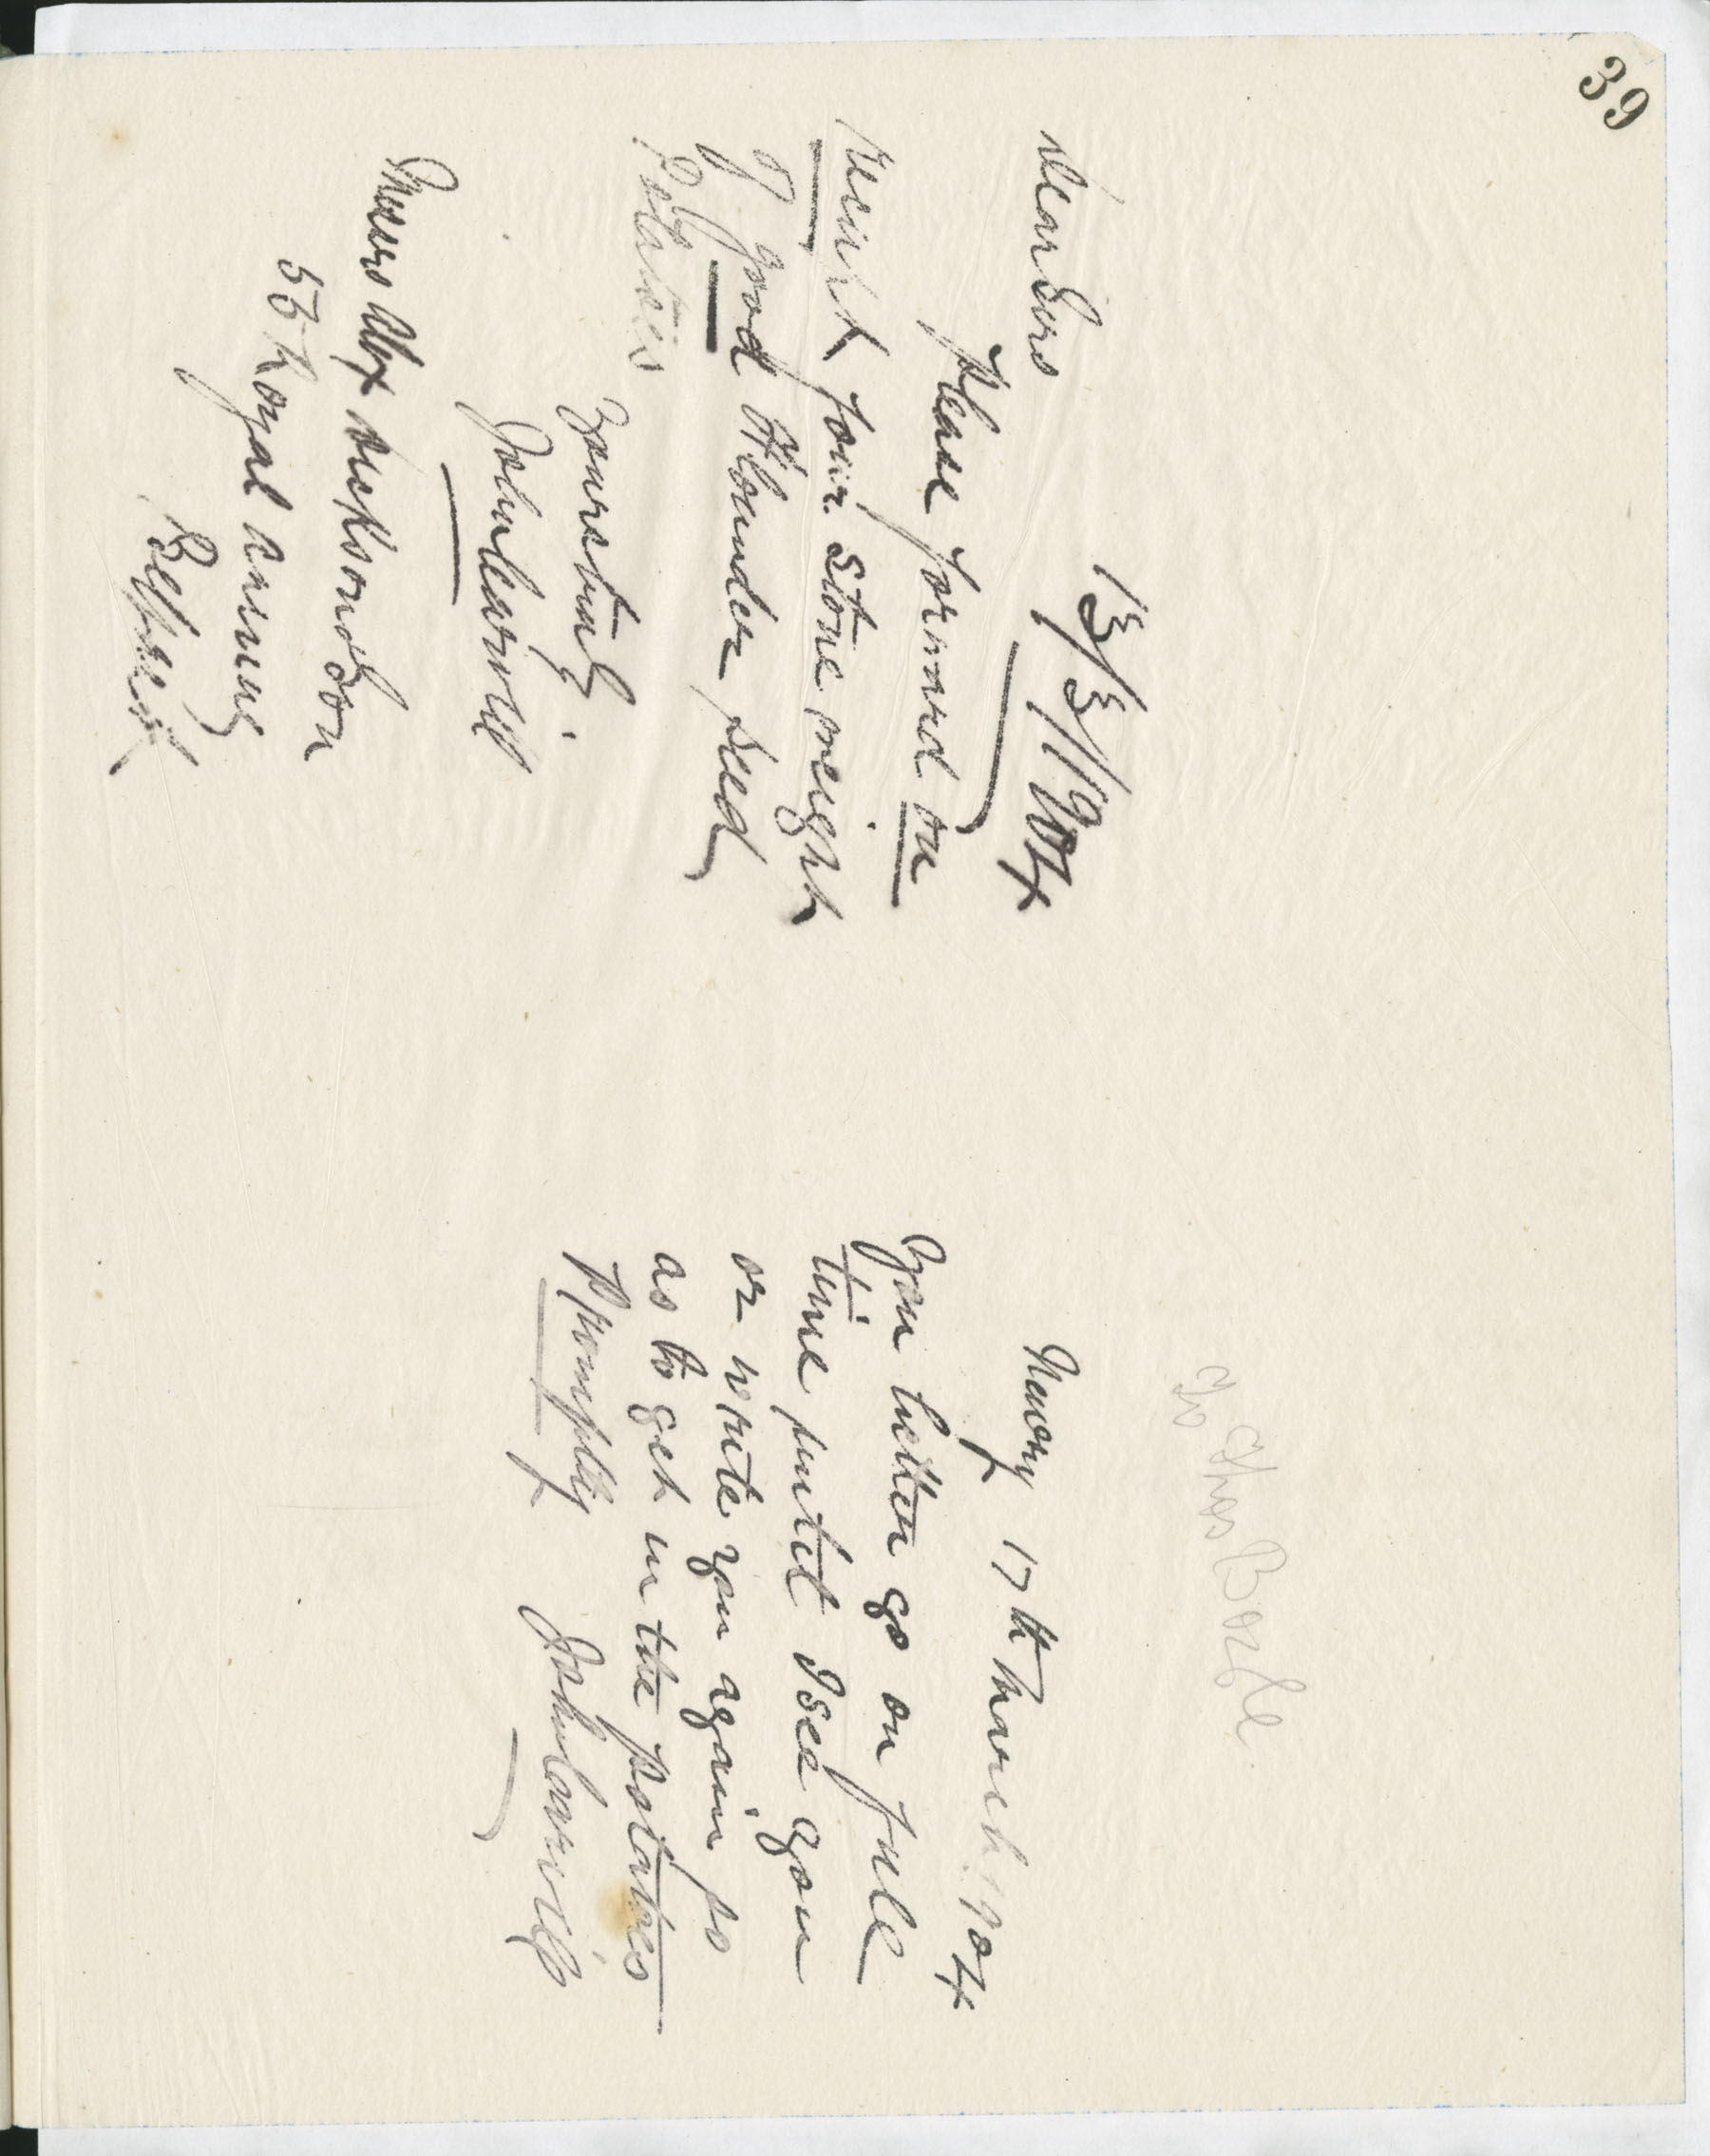 39
13/3/1904
Dear Sirs
Please forward on
recirt four stone weight
of good Flounder seed
Potatoes
Yours truly
John Carvill
Messrs Alex Dickson & Son
55 Royal avenue
Belfast
Newry 17th March 1904
You better go on full
time until I see you
or write you again so
as to get in the potatoes
promptly
John Carvill
Boyle